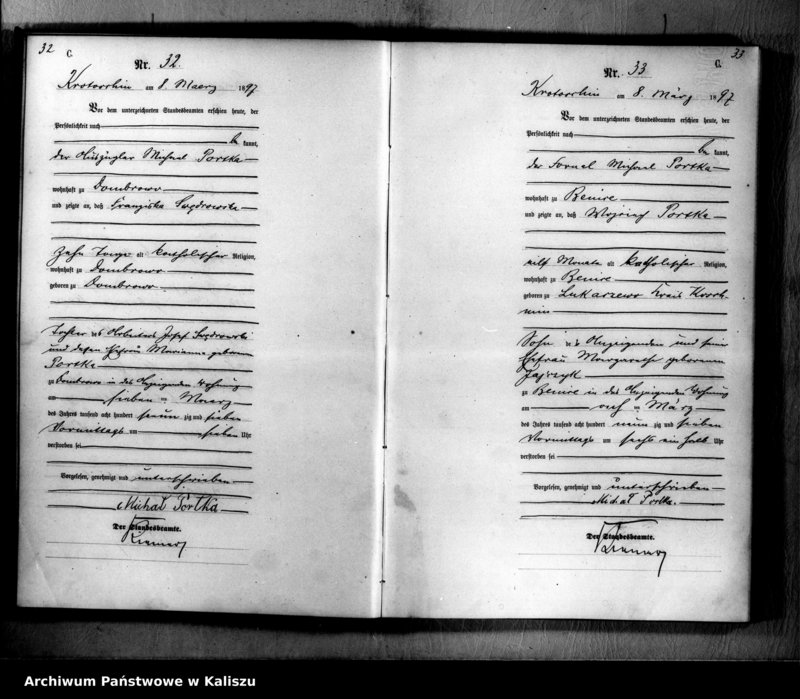 32
C.
Nr. 32.
Krotoschin am 8. Maerz 1897
Vor dem unterzeichneten Standesbeamten erschien heute, der
Persönlichkeit nach
be kannt,
der Michael Portka
wohnhaft zu Dombrowo
und zeigte an, daß Franziska
Zehn Tage alt katholischer Religion,
wohnhaft zu Dombrowo
geboren zu Dombrowo
Tochter des Arbeiters Josef
und dessen Ehefrau Marianna geborenen
Portka
zu Dombrowo in des Anzeigenden Wohnung
am sieben ten Maerz
des Jahres tausend acht hundert neun zig und sieben
Vormittags um sieben Uhr
verstorben sei
Vorgelesen, genehmigt und unterschrieben
Michał Portka
Der Standesbeamte.
33
C.
Nr. 33
Krotoschin am 8. März 1897
Vor dem unterzeichneten Standesbeamten erschien heute, der
Persönlichkeit nach
be kannt,
der Fornal Michael Portka
wohnhaft zu Benice
und zeigte an, daß Portka
elf Monate alt katholischer Religion,
wohnhaft zu Benice
geboren zu Lukaszewo Kreis
Sohn des Anzeigenden und seiner
Ehefrau Margarethe geborenen
zu Benice in des Anzeigenden Wohnung
am ten März
des Jahres tausend acht hundert neun zig und sieben
Vormittags um sechs ein halb Uhr
verstorben sei
Vorgelesen, genehmigt und unterschrieben
Michał Portka.
Der Standesbeamte.
Archiwum Państwowe w Kaliszu